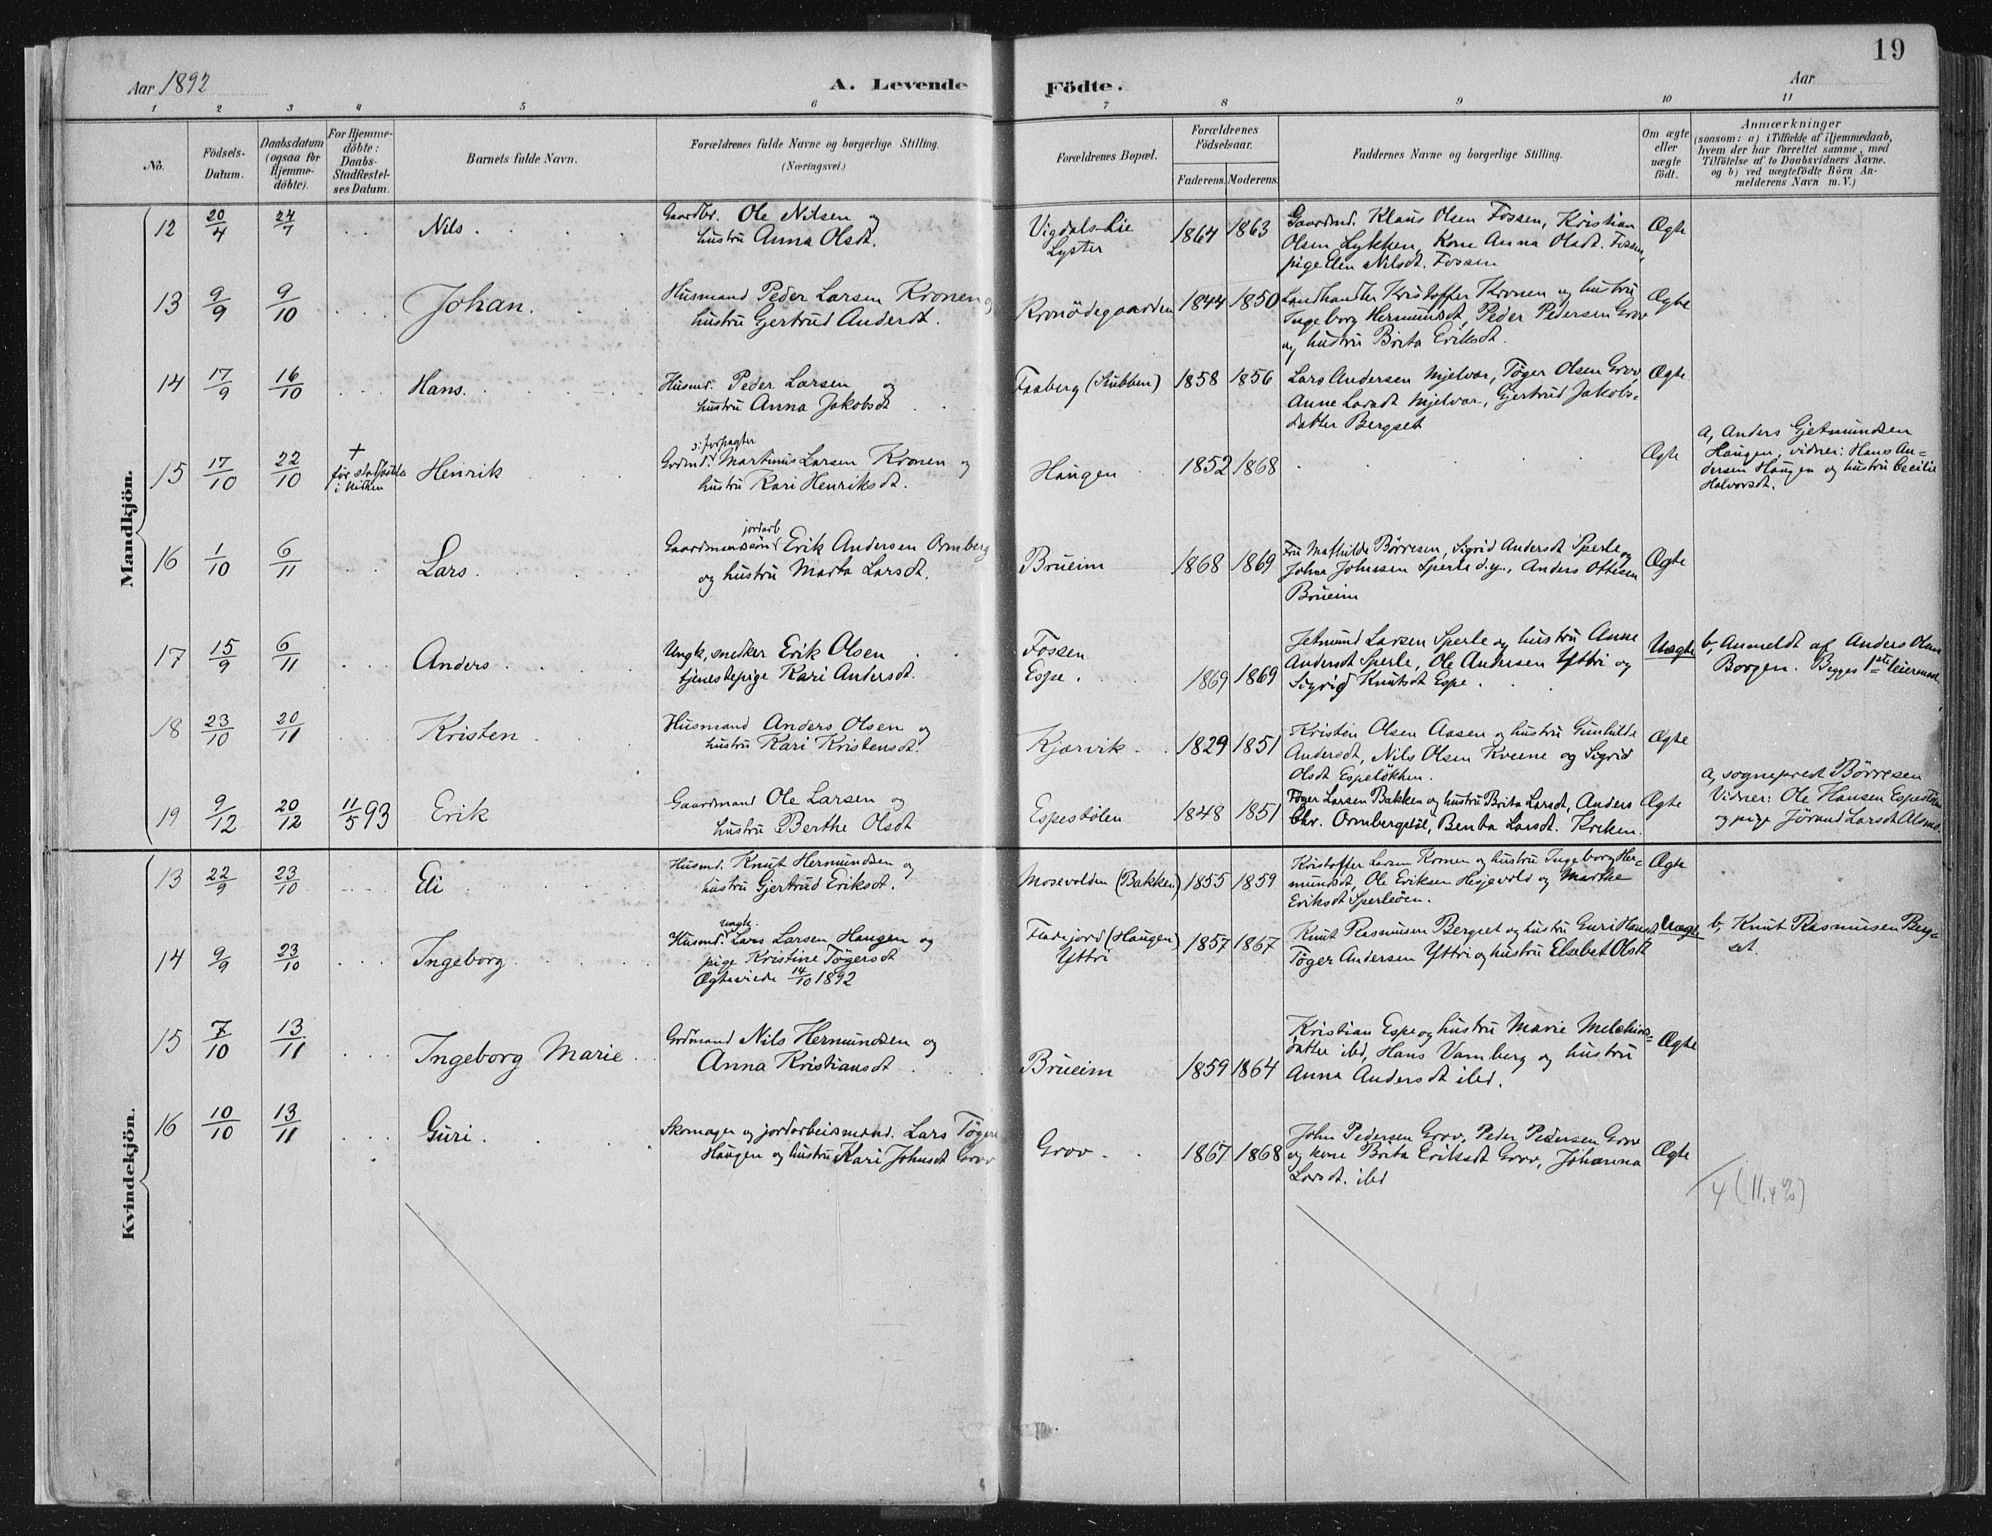 19
Aar 1892
A. Levende
Födte.
Aar
1 2 3 4 5 6 7 8 9 10 11
No.
Födsels-
Datum.
Daabsdatum
(ogsaa for
Hjemme-
döbte).
For Hjemme-
döbte:
Daabs-
Stadfæstel-
ses Datum.
Barnets fulde Navn.
Forældrenes fulde Navne og borgerlige Stilling.
(Næringsvei.)
Forældrenes Bopæl.
Forældrenes
Födselsaar.
Faderens. Moderens.
Faddernes Navne og borgerlige Stilling.
Om ægte
eller
uægte
födt.
Anmærkninger
(saasom: a) i Tilfælde af Hjemmedaab,
hvem der har forrettet samme, med
Tilföielse af to Daabsvidners Navne.
og b) ved uægtefödte Börn An-
melderens Navn m. V.)
Mandkjön.
12 20/4 Nils.
Gaardbr. Ole Nilsen og
hustru Anna Olsdt.
Vigdals-Lie
Lyster
1864 1863
Gaardmd. Klaus Olsen Fossen, Kristian
Olsen Lykken, Kone Anna Olsdt. Fossen,
pige Elen Nilsdt. Fossen
Ægte
13 9/9 9/10 Johan.
Husmand Peder Larsen Kronen og
hustru Gjertrud Andersdt.
Kronödegaarden
1844 1850
Landhandler Kristoffer Kronen og hustru
Ingeborg Hermundsdt, Peder Pedersen Grov
og hustru Brita Eriksdt.
Ægte
14 17/9 16/10 Hans.
Husmd. Peder Larsen og
hustru Anna Jakobsdt
Faaberg (Stubben)
1858 1856
Lars Andersen Mjelvar, Töger Olsen Grov,
Anne Larsdt Mjelvar, Gjertrud Jakobs-
datter Bergset
Ægte
15 17/10 22/10 + før stadfæstelse i kirken Henrik
forpagter
Grdmd. Martinus Larsen Kronen og
hustru Kari Henriksdt.
Haugen
1852 1868
Ægte
a, Anders Gjetmundsen
Haugen, vidner: Hans An-
dersen Haugen og hustru Cecilie
Halvorsdt.
16 1/10 6/11 Lars.
jordarb
Gaardmandssön Erik Andersen Ormberg
og hustru Marta Larsdt.
Brueim
1868 1869
Fru Mathilde Börresen, Sigrid Andersdt Sperle og
Johan Johnsen Sperle d.y., Anders Ottesen
Brueim
Ægte
17 15/9 6/11 Anders.
Ungk, snedker Erik Olsen
tjenestepige Kari Andersdt.
Fossen
Espe.
1869 1869
Jetmund Larsen Sperle og hustru Anne
Andersdt Sperle, Ole Andersen Yttri og
Sigrid Knutsdt Espe.
Uægte
b, Anmeldt af Anders Olsen
Borgen. Begges 1ste leiermaal.
18 23/10 20/11 Kristen
Husmand Anders Olsen og
hustru Kari Kristensdt.
Kjærvik.
1829 1851
Kristen Olsen Aasen og hustru Gunhilde
Andersdt, Nils Olsen Kveene og Sigrid
Olsdt Espelökken.
Ægte
19 9/12 20/12 11/5 93 Erik
Gaardmand Ole Larsen og
hustru Berthe Olsdt
Espestölen
1848 1851
Töger Larsen Bakken og hustru Brita Larsdt, Anders
Chr. Ormbergstöl, Benta Larsdt. Kreken.
Ægte
a, sogneprest Börresen
Vidner: Ole Hansen Espestölen
og pige Jörand Larsdt Alsmo.
Kvindekjön.
13 22/9 23/10 Eli
Husmd. Knut Hermundsen og
hustru Gjertrud Eriksdt.
Mosevolden (Bakken)
1855 1859
Kristoffer Larsen Kronen og hustru Ingeborg Her-
mundsdt, Ole Eriksen Hesjevold og Marthe
Eriksdt Sperleöen.
Ægte
14 9/9 23/10 Ingeborg
ungk.
Husmd. Lars Larsen Haugen og
pige Kristine Tögersdt
Ægteviede 14/10 1892
Fladejord (Haugen)
Yttri
1857 1867
Knut Rasmussen Bergset og hustru Guri Hansdt
Töger Andersen Yttri og hustru Elsebet Olsdt
Uægte
b, Knut Rasmussen Berg-
set.
15 7/10 13/11 Ingeborg Marie
Grdmand Nils Hermundsen og
Anna Kristiansdt
Brueim
1859 1864
Kristian Espe og hustru Marie Melchiors-
datter ibd, Hans Vamberg og hustru
Anna Andersdt ibd.
Ægte
16 10/10 13/11 Guri.
Skomager og jordarbeidsmand. Lars Töger
Haugen og hustru Kari Johnsdt Grov
Grov
1867 1868
John Pedersen Grov, Peder Pedersen Grov
og kone Brita Eriksdt Grov, Johanna
Larsdt. ibd
Ægte
4 (11,4%)